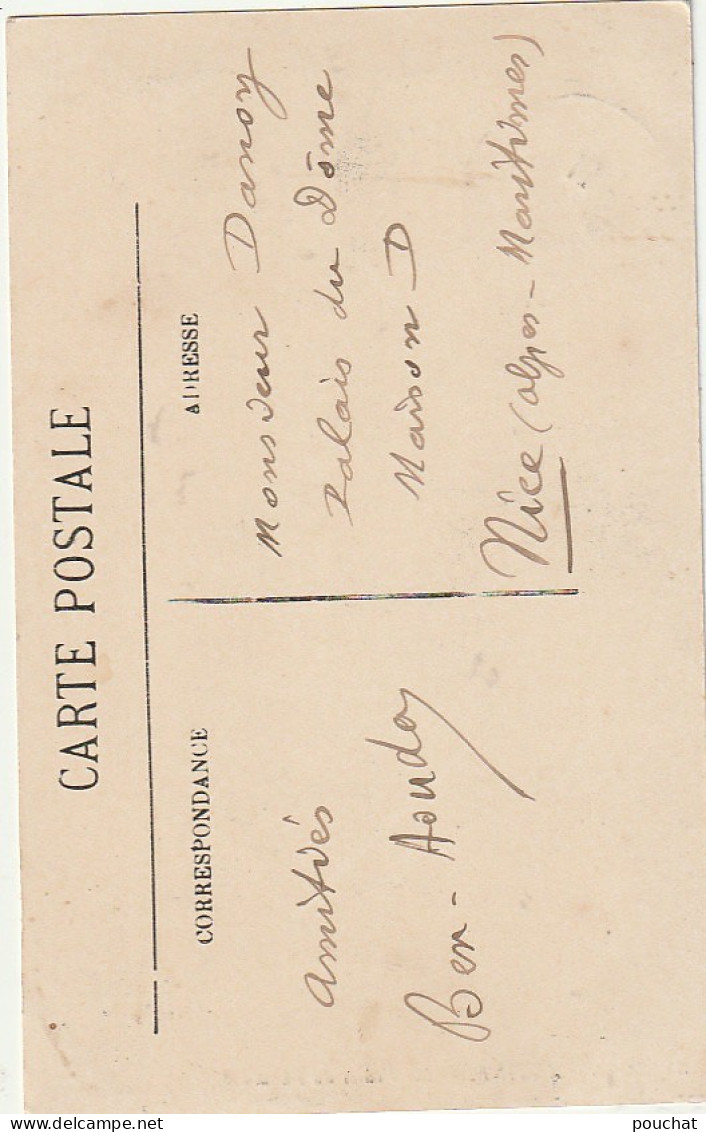 CARTE POSTALE
CORRESPONDANCE
ADRESSE
Amitiés
Ben-Aouda
Monsieur Danoy
Palais du Dôme
Maison D
Nice (Alpes-Maritimes)
pouchat